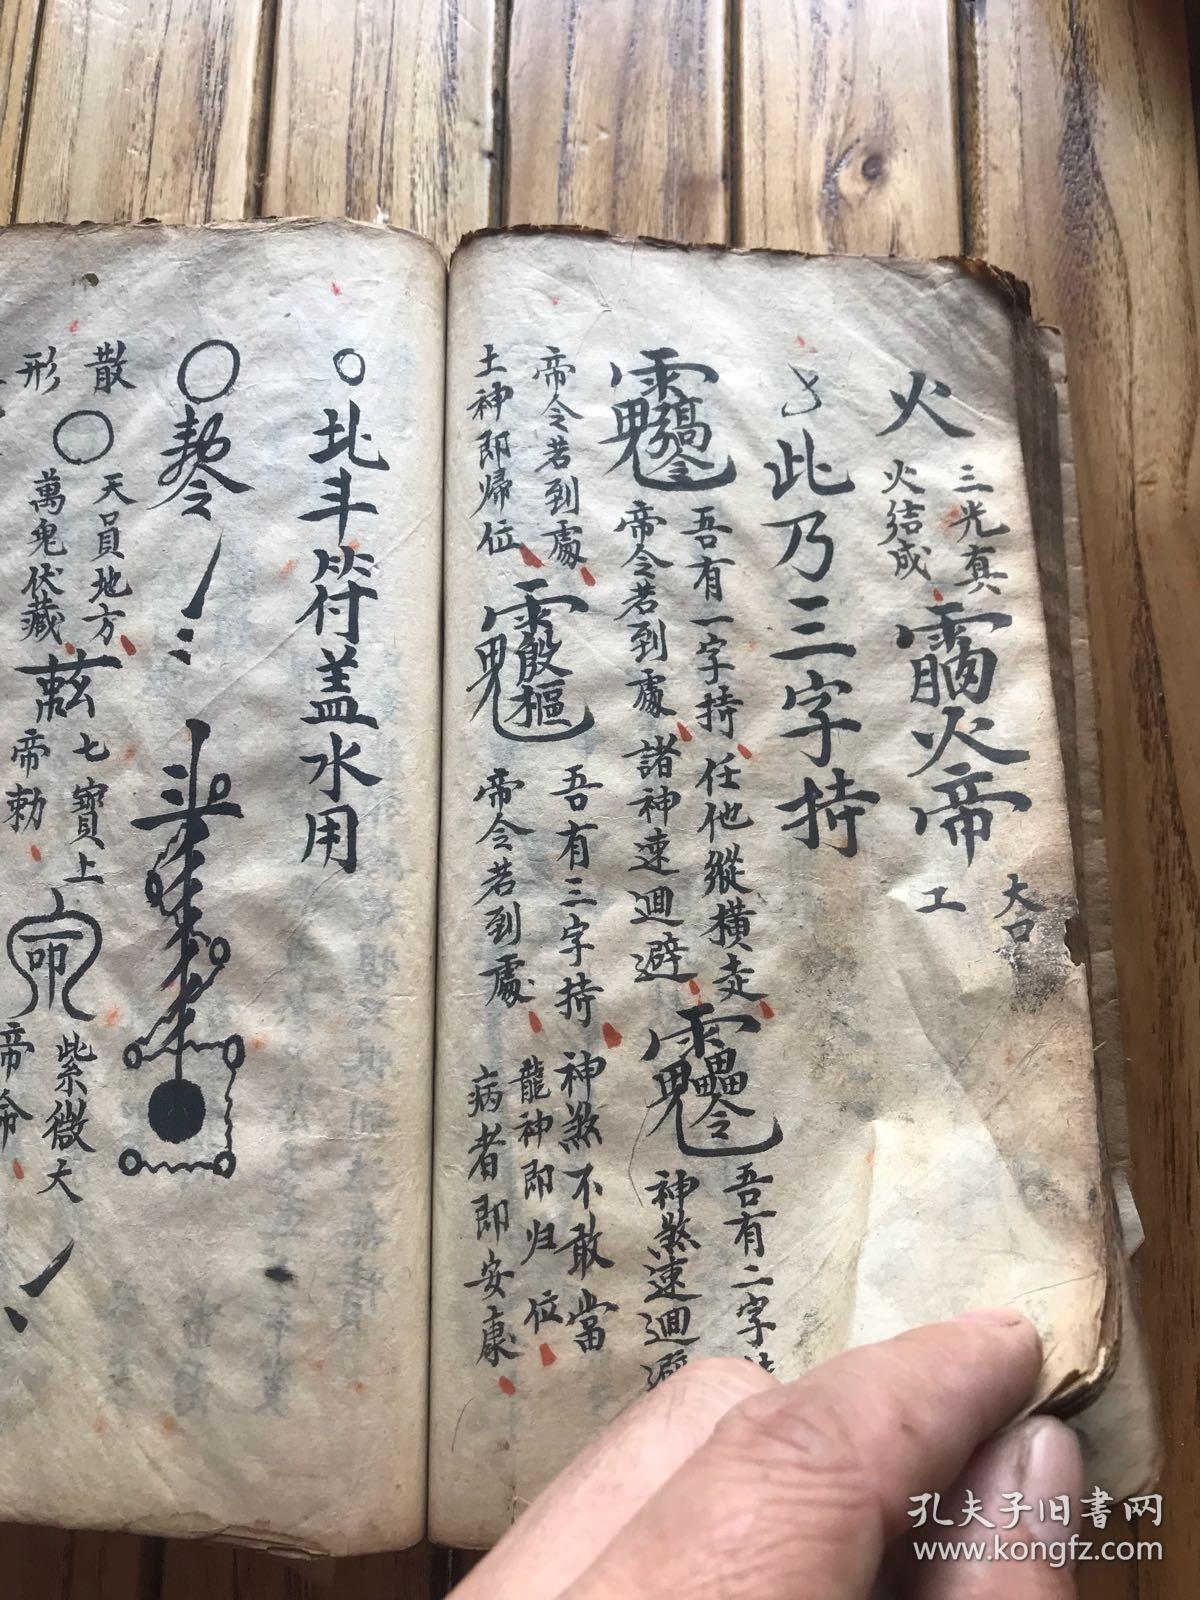 火
三光真
火結成
火帝
工
此乃三字持
吾有一字持任他縱橫走
帝令若到處諸神速迴避
吾有二字
神煞速迴避
帝令若到處
土神即歸位
吾有三字持神煞不敢當
帝令若到處龍神即归位
病者即安康
北斗符盖水用
散
形
天員地方
萬鬼伏藏
七寶上
帝勅
紫微大
帝
孔夫子旧书网
www.kongfz.com